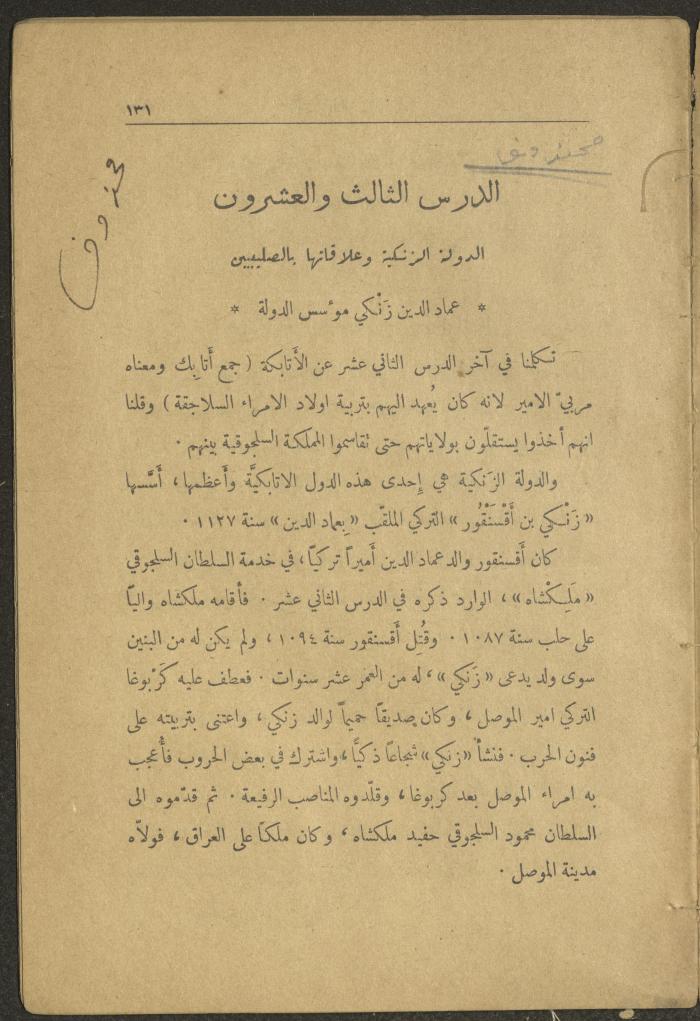 ١٣١
الدرس الثالث والعشرون
الدولة الزنكية وعلاقاتها بالصليبيين
* عماد الدين زَنْكي مؤسس الدولة *
تكلمنا في آخر الدرس الثاني عشر عن الأَتابكة ( جمع أَتابِك ومعناه
مربيّ الامير لانه كان يُعهد اليهم بتربية اولاد الامراء السلاجقة ) وقلنا
انهم أخذوا يستقلّون بولاياتهم حتى تقاسموا المملكة السلجوقية بينهم ٠
والدولة الزَنكية هي إِحدى هذه الدول الاتابكيَّة وأَعظمها، أَسَّسها
« زَنْكي بن أَقْسَنْقُور » التركي الملقّب « بِعماد الدين » سنة ١١٢٧ ٠
كان أَقسنقور والد عماد الدين أَميراً تركيّاً، في خدمة السلطان السلجوقي
« مَلِكْشاه » ، الوارد ذكره في الدرس الثاني عشر ٠ فأقامه ملكشاه والياً
على حلب سنة ١٠٨٧ ٠ وقُتِل أَقسنقور سنة ١٠٩٤ ، ولم يكن له من البنين
سوى ولد يدعى « زَنكي » ، له من العمر عشر سنوات ٠ فعطف عليه كَرْبوغا
التركي امير الموصل ، وكان صديقاً حميماً لوالد زنكي ، واعتنى بتربيته على
فنون الحرب ٠ فنشأ « زنكي » شجاعاً ذكيًّا ، واشترك في بعض الحروب فأُعجب
به امراء الموصل بعد كربوغا ، وقلّدوه المناصب الرفيعة ٠ ثم قدّموه الى
السلطان محمود السلجوقي حفيد ملكشاه ، وكان ملكاً على العراق ، فولاّه
مدينة الموصل ٠